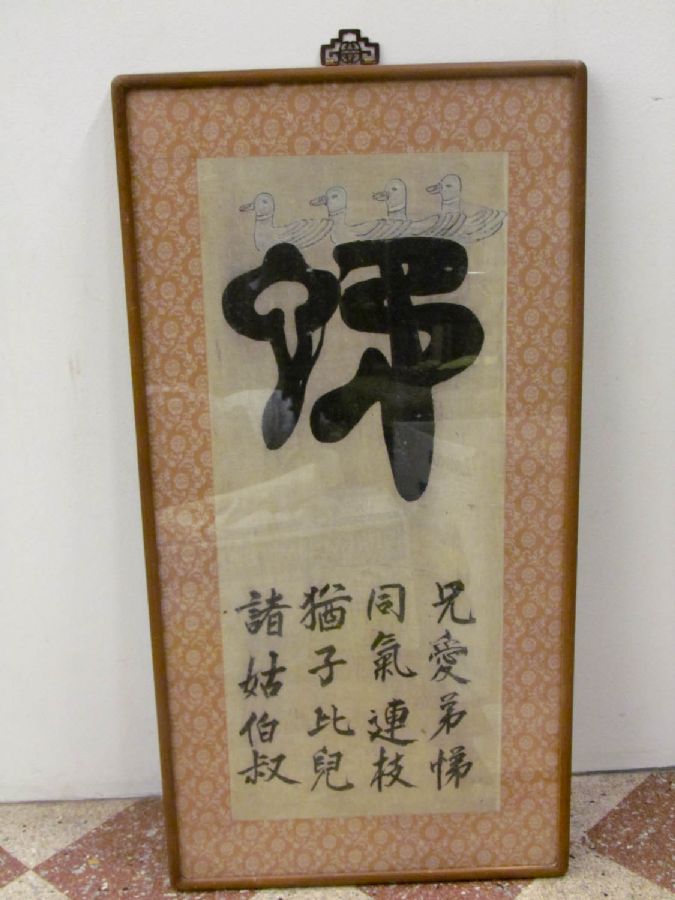 悌
兄愛弟悌
同氣連枝
猶子比兒
諸姑伯叔